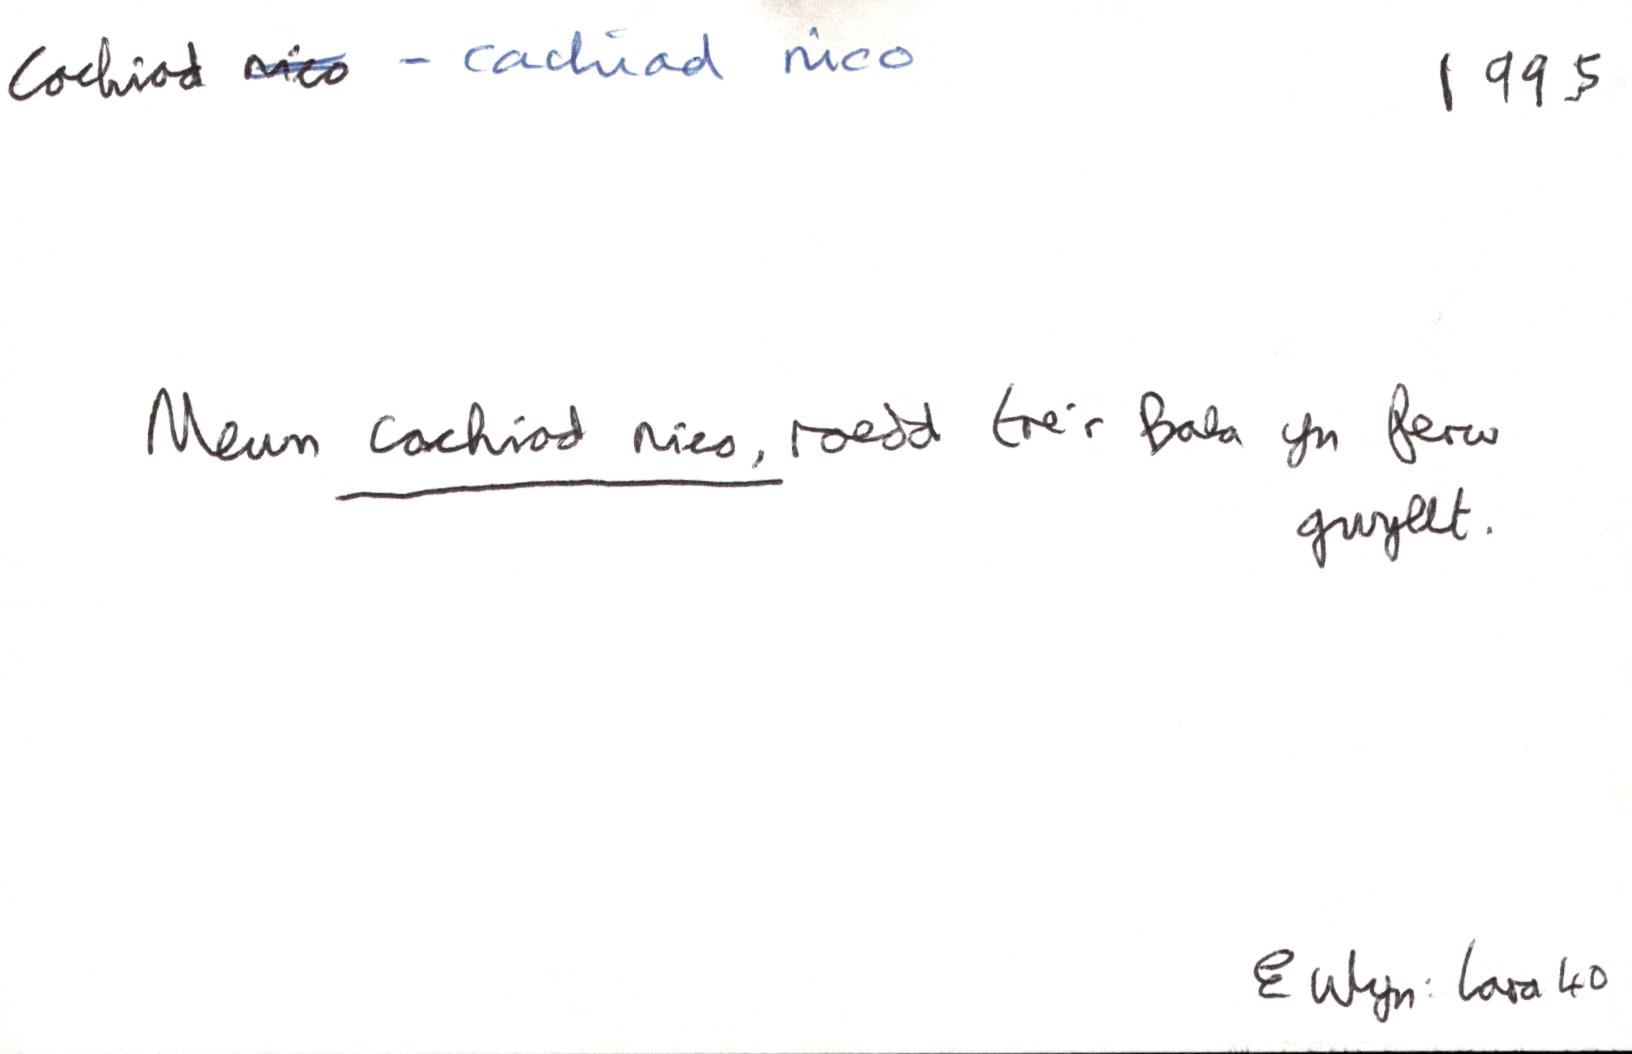 Cachiad nico - cachiad nico 1995
Mewn cachiad nico, roedd tre'r Bala yn ferw
gwyllt.
E Wlyn: Lara 40